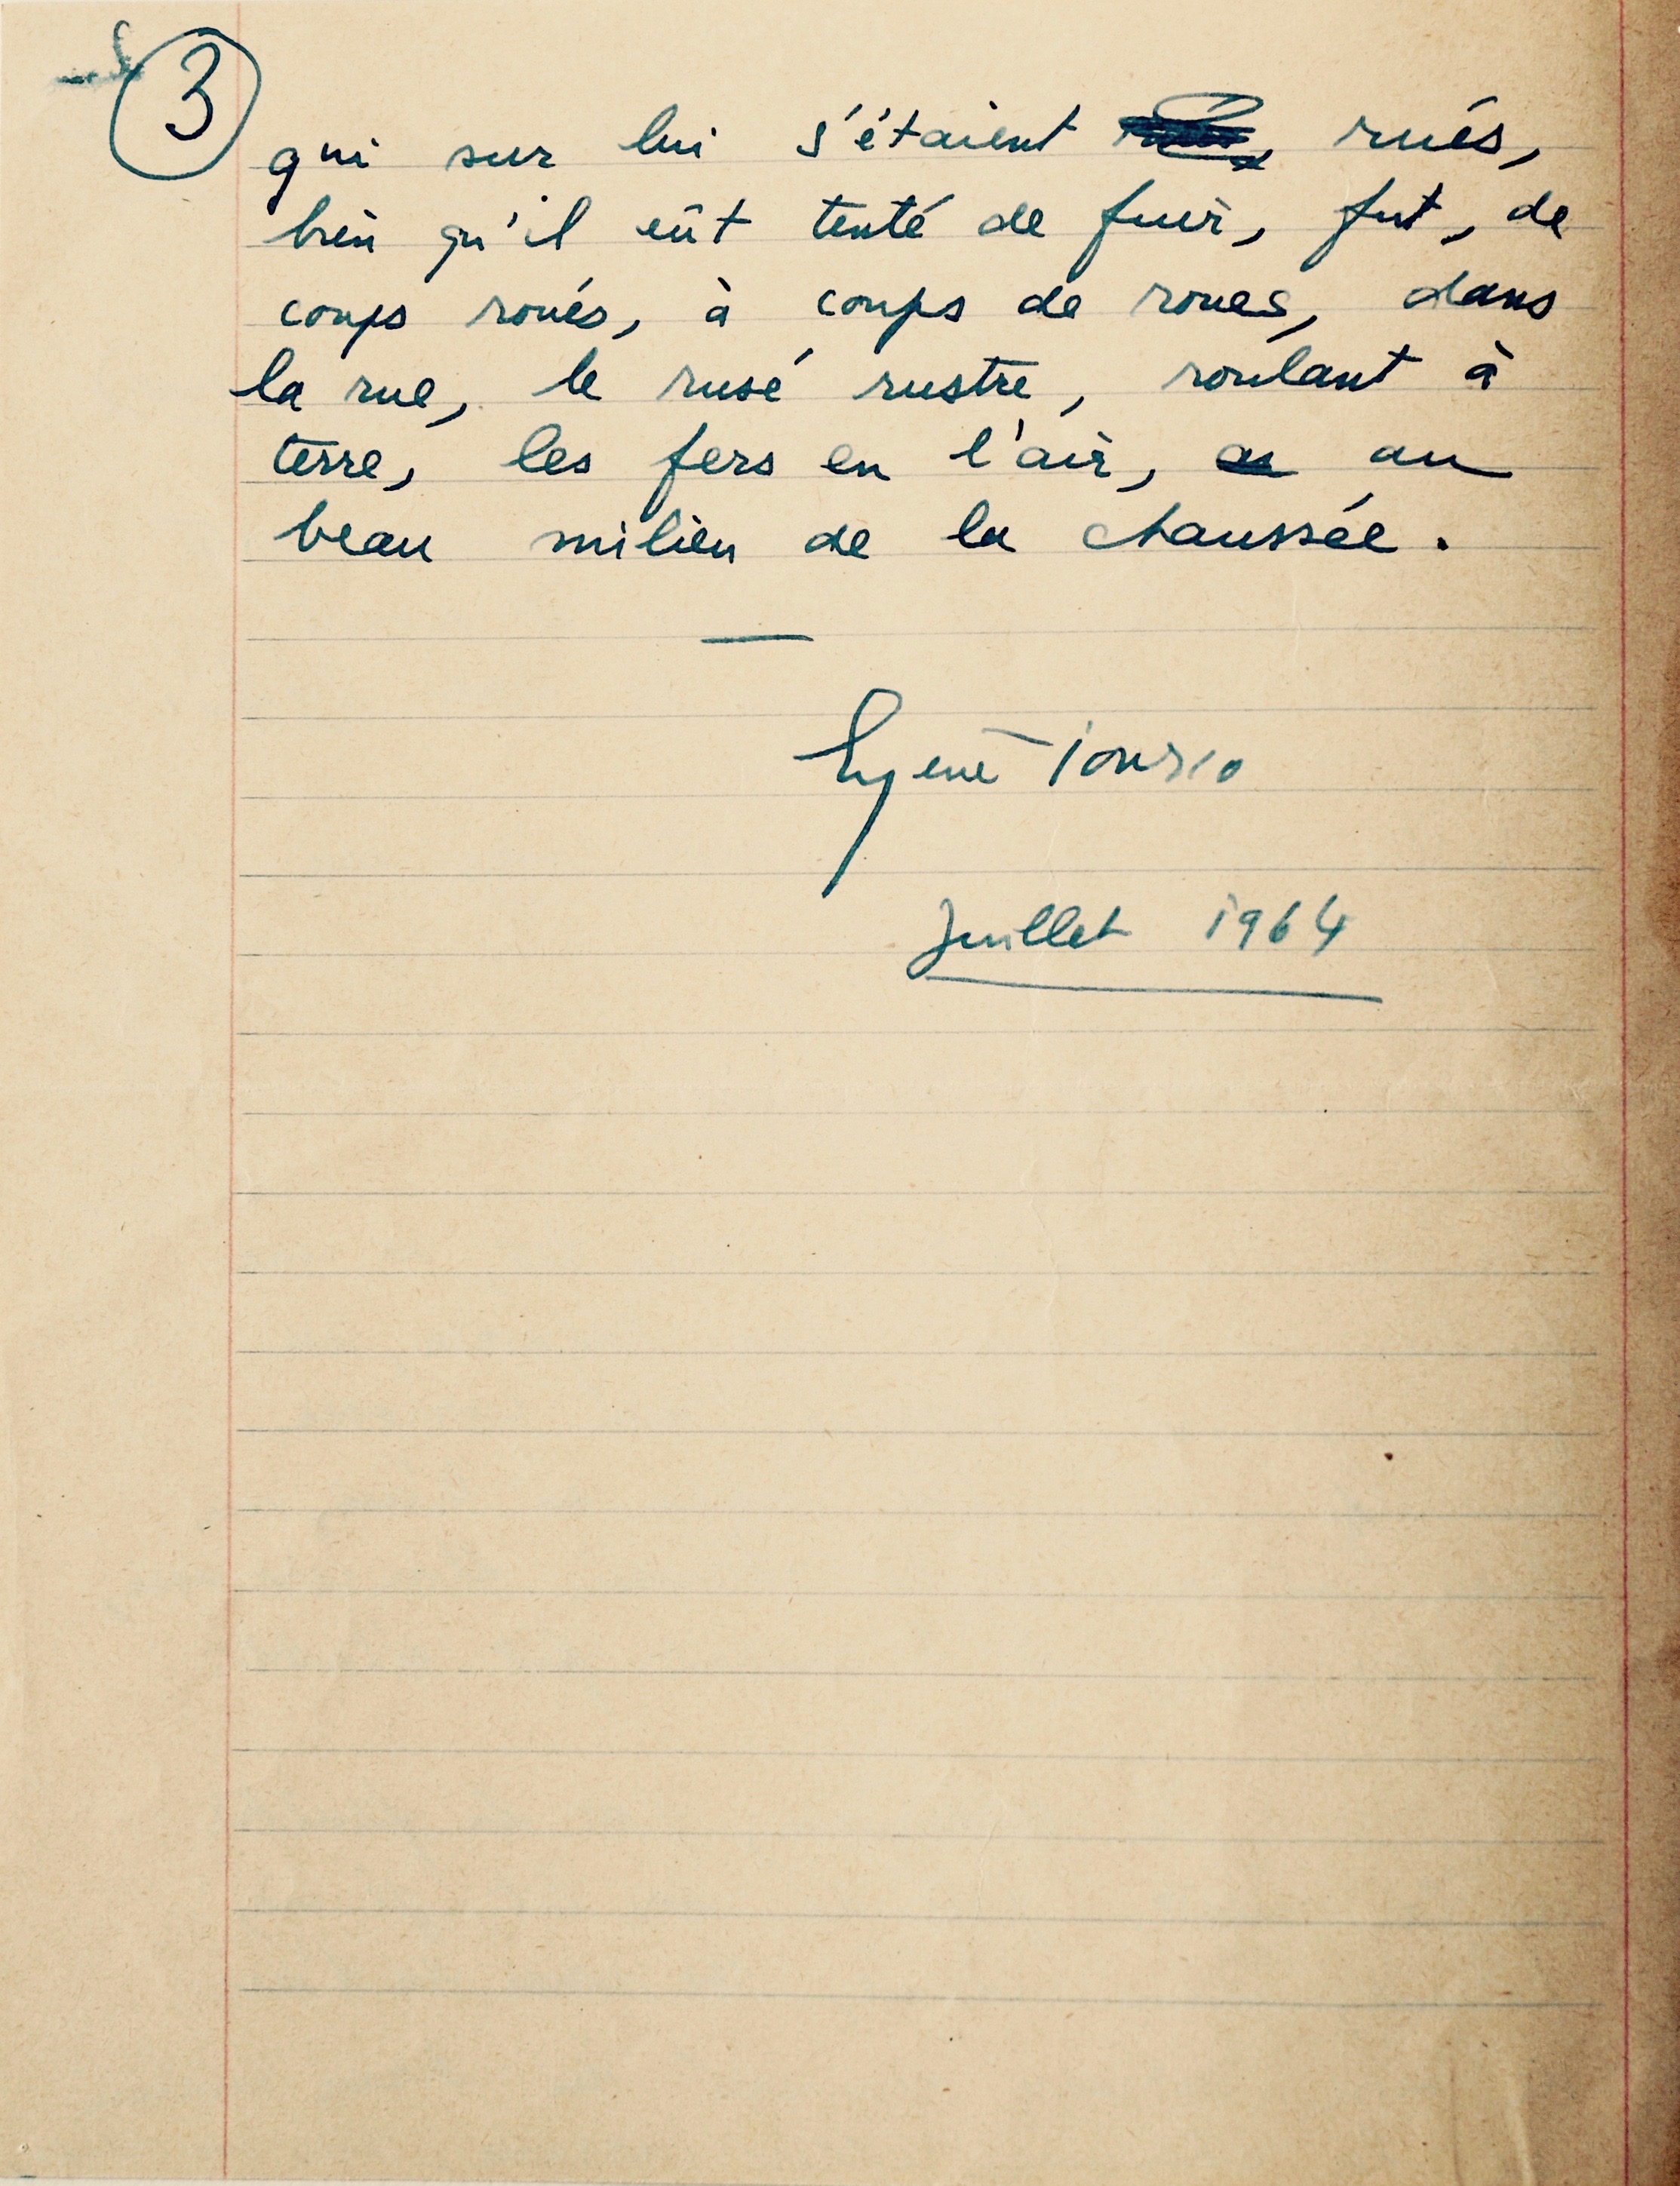 3
qui sur lui s'étaient rués,
bien qu'il eût tenté de fuir, fut, de
coups roués, à coups de roues, dans
la rue, le rusé rustre, roulant à
terre, les fers en l'air, au
beau milieu de la chaussée.
Eugène Ionesco
Juillet 1964